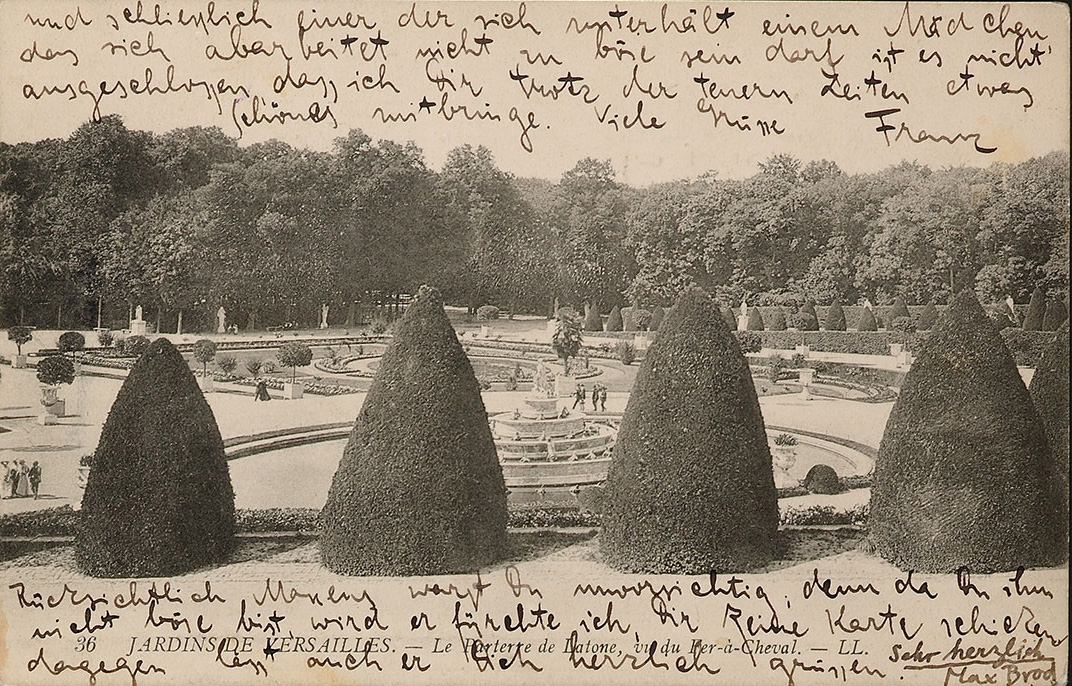 und schließlich einer der sich unterhält einem Mädchen,
das sich abarbeitet nicht zu böse sein darf ist es nicht
ausgeschlossen dass ich Dir trotz der teuern Zeiten etwas
Schönes mitbringe. Viele Grüße Franz
Rücksichtlich Maxens warst Du unvorsichtig, denn da Du ihm
nicht böse bist, wird er fürchte ich, Dir keine Karte schicken
36 JARDINS DE VERSAILLES. — Le Parterre de Latone, vu du Fer-à-Cheval. — LL.
dagegen lässt auch er Dich herzlich grüssen.
Sehr herzlich
Max Brod